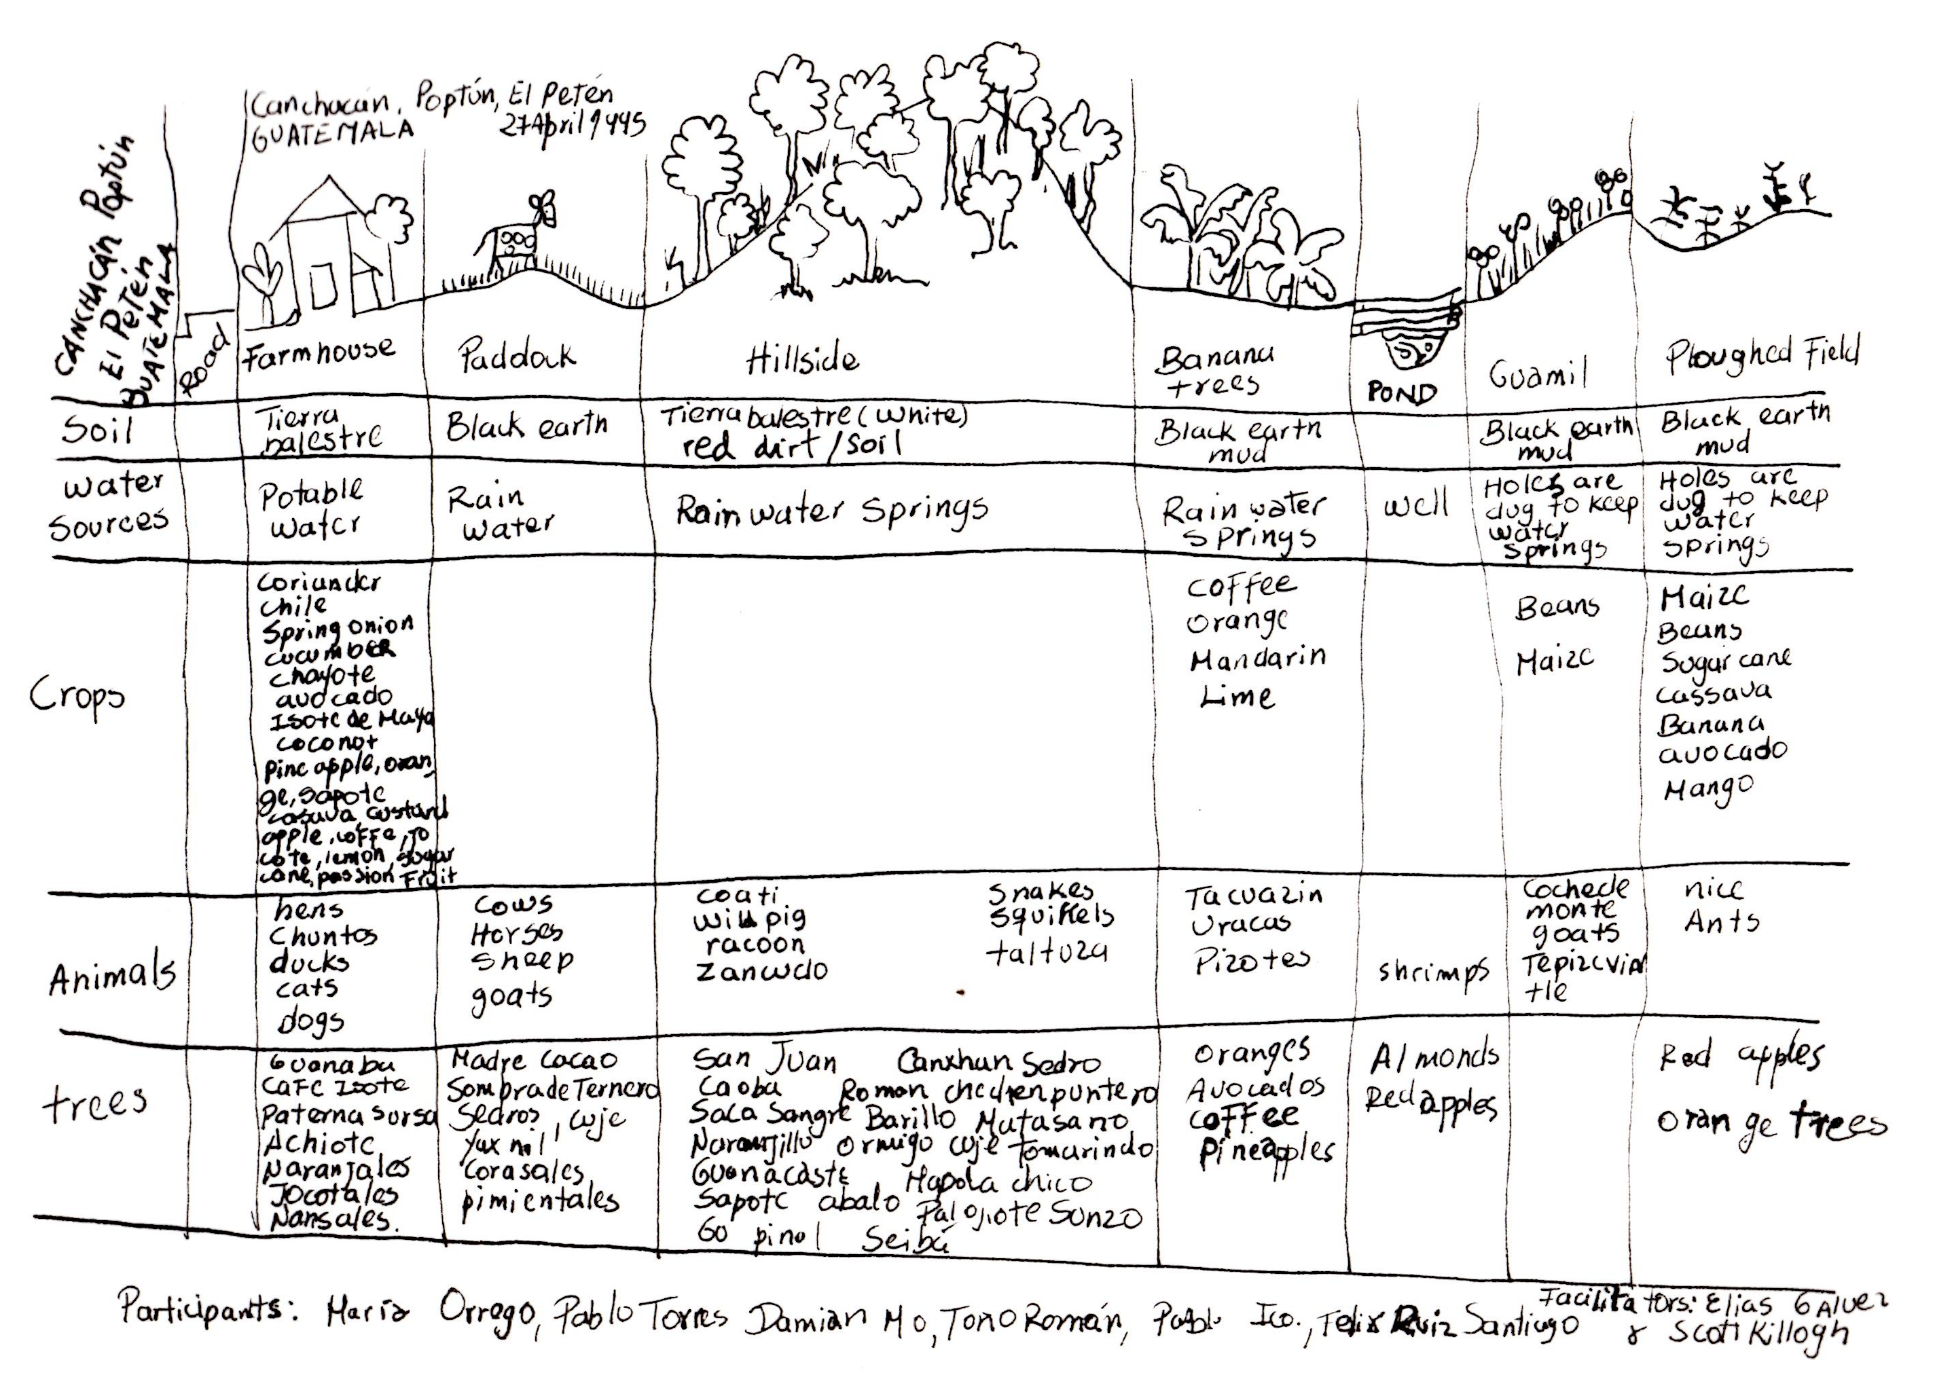 Canchacán, Poptún, El Petén
GUATEMALA 27 April 1995
CANCHACÁN Poptún
El Petén
GUATEMALA
Road
Farmhouse
Paddak
Hillside
Banana
trees
POND
Guamil
Ploughed Field
Soil
Tierra
balestre
Black earth
Tierra balestre (white)
red dirt/soil
Black earth
mud
Black earth
mud
Black earth
mud
Water
Sources
Potable
water
Rain
water
Rain water Springs
Rain water
springs
well
Holes are
dug to keep
water
springs
Holes are
dug to keep
water
springs
Crops
coriander
chile
Spring onion
cucumber
chayote
avocado
Isote de Maya
coconot
pine apple, oran
ge, sapote
casava, custard
apple, coffe, jo
cote, lemon, sugar
cane, passion fruit
coffee
orange
Mandarin
Lime
Beans
Maize
Maize
Beans
Sugar cane
cassava
Banana
avocado
Mango
Animals
hens
Chuntos
ducks
cats
dogs
cows
Horses
sheep
goats
coati
wild pig
racoon
zanwdo
snakes
squirrels
taltuza
Tacuazin
Uracas
Pizotes
shrimps
Cochede
monte
goats
Tepizcuin
tle
nice
Ants
trees
Guanaba
Cafe Isote
Paterna sursa
Achiote
Naranjales
Jocotales
Nansales.
Madre Cacao
Sombra de Ternero
Sedros, cuje
Yax nil
Corasales
pimientales
San Juan Canxhan Sedro
Caoba Romon chechen puntero
Saca Sangre Barillo Matasano
Naranjillo ormigo cuje tomarindo
Guanacaste Hapola chico
Sapote abalo Palojiote Sunzo
Go pinol Seibá
oranges
Avocados
coffee
pineapples
Almonds
Red apples
Red apples
orange trees
Participants: María Orrego, Pablo Torres Damian Mo, Toño Román, Pablo Ico., Felix Ruiz Santiago
Facilitators: Elias Galvez
& Scott Killogh